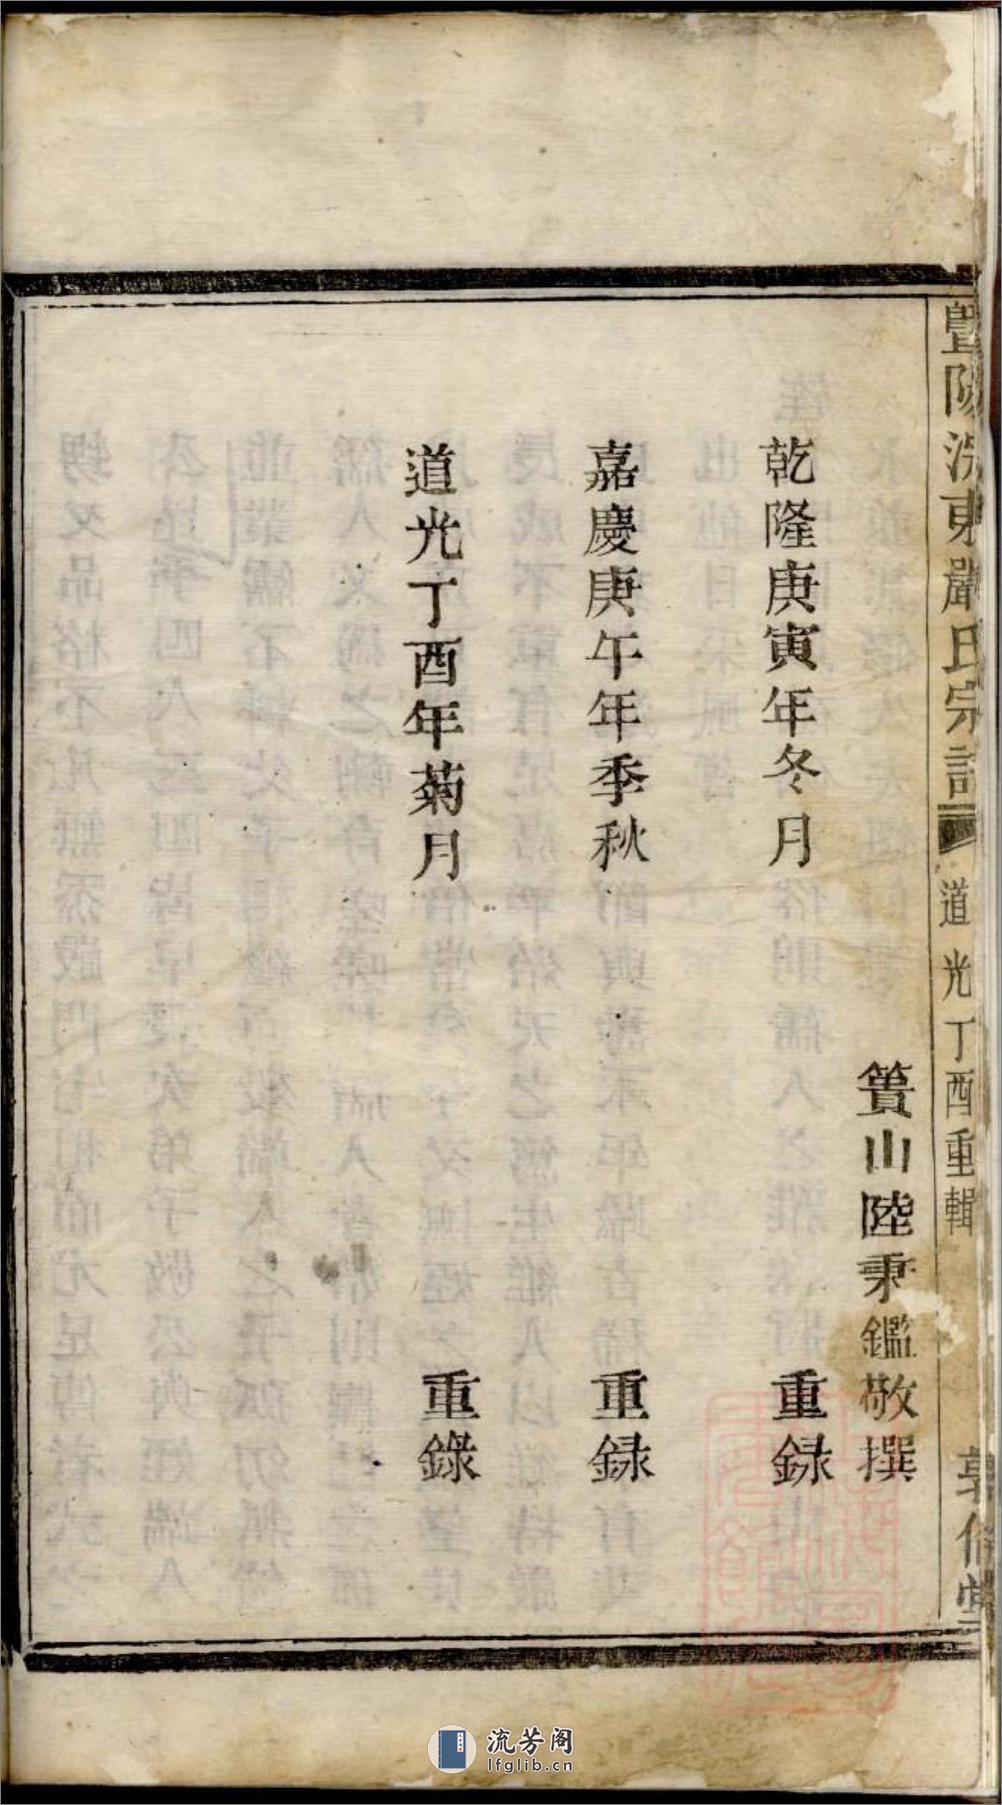 暨陽浣東嚴氏宗譜
道光丁酉重輯
敦倫堂
簣山陸秉鑑敬撰
乾隆庚寅年冬月 重録
嘉慶庚午年季秋 重録
道光丁酉年菊月 重錄
流芳阁
lfglib.cn